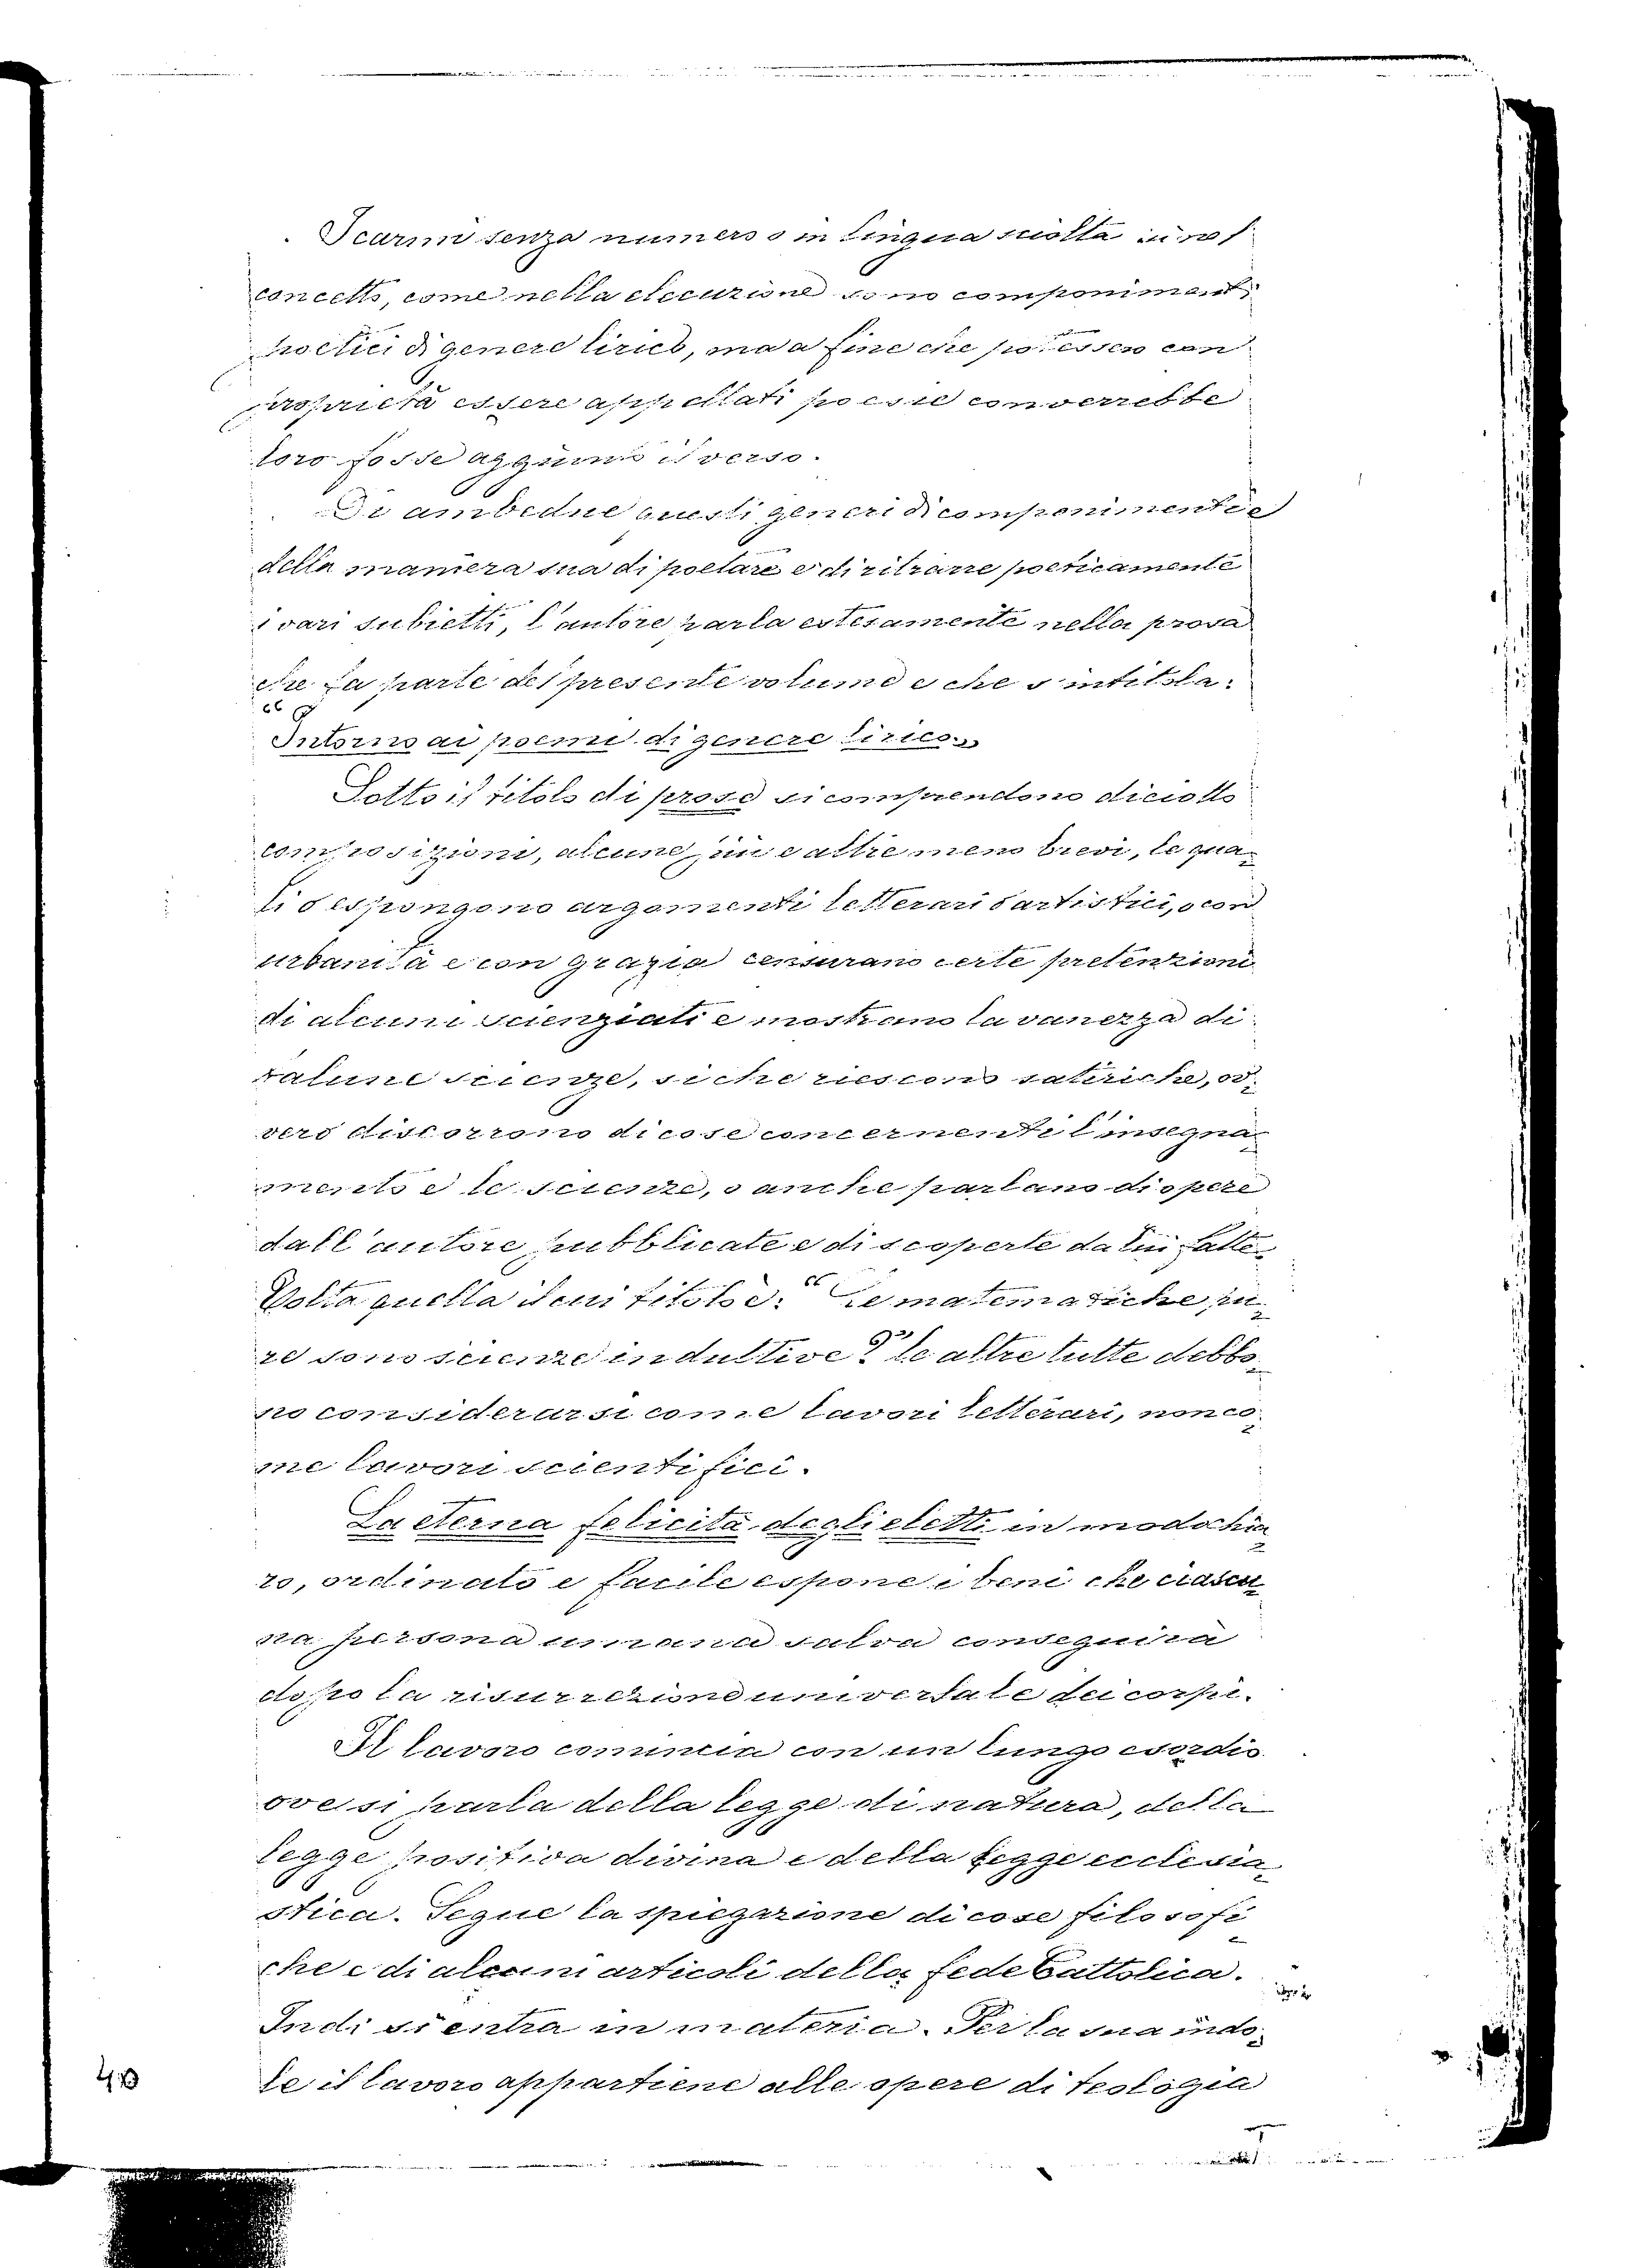 I carmi senza numero o in lingua sciolta sì nel
concetto, come nella elocuzione sono componimenti
poetici di genere lirico, ma a fine che potessero con
proprietà essere appellati poesie converrebbe
loro fosse aggiunto il verso.
Di ambedue questi generi di componimenti e
della maniera sua di poetare e di ritrarre poeticamente
i vari subietti, l'autore parla estesamente nella prosa
che fa parte del presente volume e che s'intitola:
“Intorno ai poemi di genere lirico„
Sotto il titolo di prose si comprendono diciotto
composizioni, alcune più e altre meno brevi, le qua-
li o espongono argomenti letterari o artistici, o con
urbanità e con grazia censurano certe pretenzioni
di alcuni scienziati e mostrano la vanezza di
talune scienze, sì che riescono satiriche, ov-
vero discorrono di cose concernenti l'insegna-
mento e le scienze, o anche parlano di opere
dall'autore pubblicate e di scoperte da lui fatte.
Tolta quella il cui titolo è: “Le matematiche pu-
re sono scienze induttive?” le altre tutte debbo-
no considerarsi come lavori letterari, non co-
me lavori scientifici.
La eterna felicità degli eletti in modo chia-
ro, ordinato e facile espone i beni che ciascu-
na persona umana salva conseguirà
dopo la risurrezione universale dei corpi.
Il lavoro comincia con un lungo esordio
ove si parla della legge di natura, della
legge positiva divina e della legge ecclesia-
stica. Segue la spiegazione di cose filosofi-
che e di alcuni articoli della fede Cattolica.
Indi si entra in materia. Per la sua indo-
le il lavoro appartiene alle opere di teologia